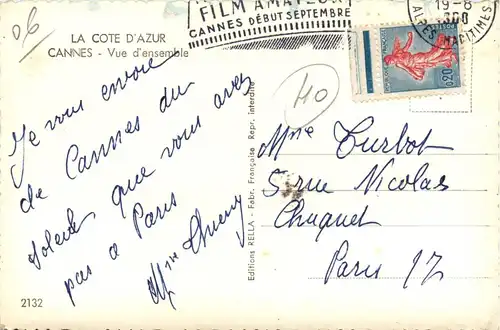 06
LA COTE D'AZUR
CANNES - Vue d'ensemble
FILM AMATEUR
CANNES DÉBUT SEPTEMBRE
19-8
ALPES MARITIMES
0,20
40
Je vous envoie
de Cannes du
soleil que vous avez
pas à Paris
Mme
Editions RELLA - Fabr. Française Repr. interdite
Mme Turbot
5 rue Nicolas
Chuquet
Paris 17
2132